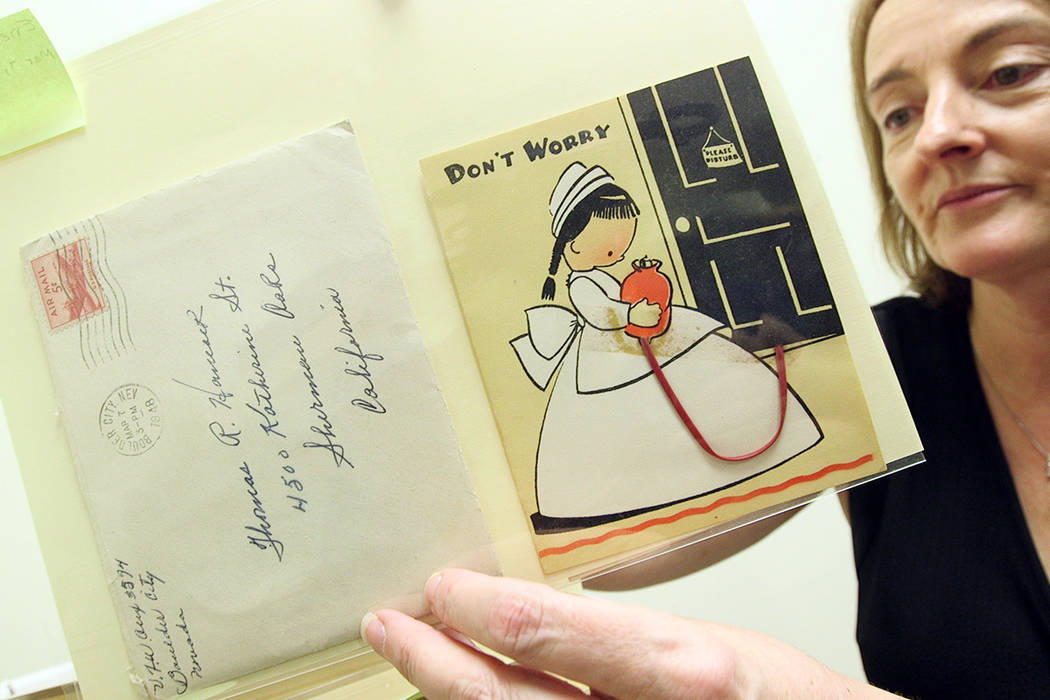 AIR MAIL
5¢
BOULDER CITY NEV
MAR 7
3-PM
1948
Thomas R. Hancock
4500 Katherine St.
Sherman Oaks
California
Boulder City
Nevada
DON'T WORRY
"PLEASE"
DISTURB